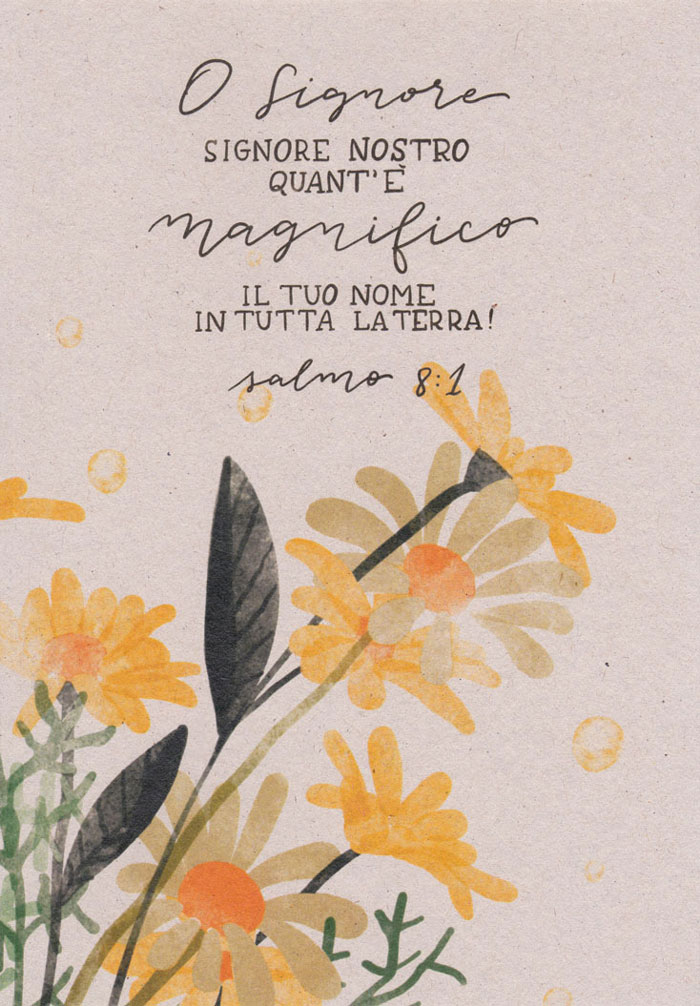 O Signore
SIGNORE NOSTRO
QUANT'È
magnifico
IL TUO NOME
IN TUTTA LA TERRA!
salmo 8:1